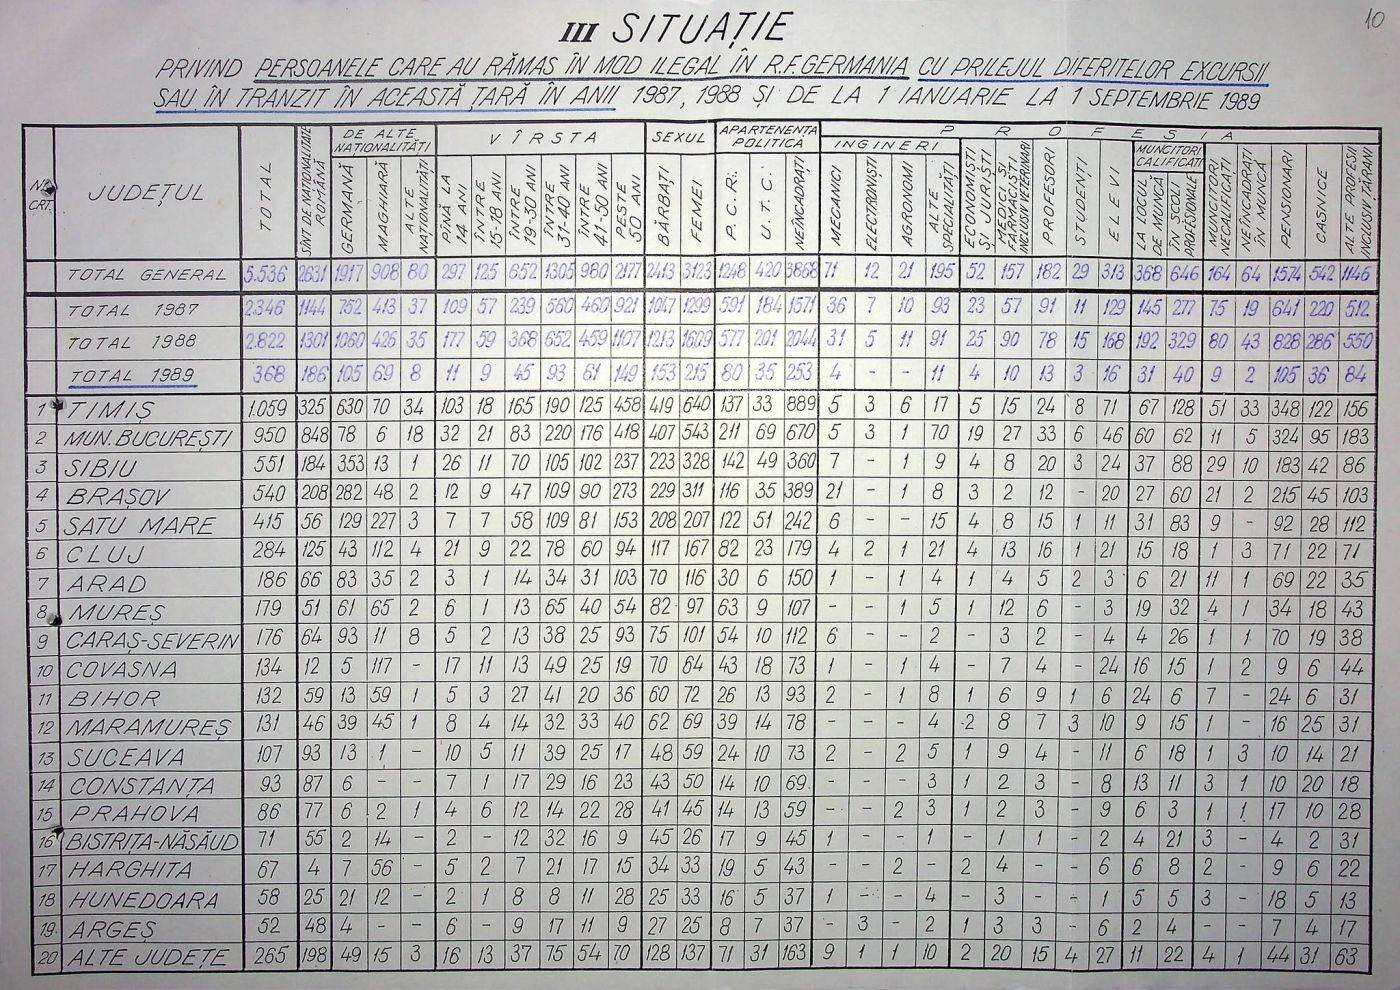 10
III SITUAȚIE
PRIVIND PERSOANELE CARE AU RĂMAS ÎN MOD ILEGAL ÎN R.F.GERMANIA CU PRILEJUL DIFERITELOR EXCURSII
SAU ÎN TRANZIT ÎN ACEASTĂ ȚARĂ ÎN ANII 1987, 1988 ȘI DE LA 1 IANUARIE LA 1 SEPTEMBRIE 1989
NR. CRT. JUDEȚUL TOTAL SÎNT DE NAȚIONALITATE ROMÂNĂ DE ALTE NAȚIONALITĂȚI VÎRSTA SEXUL APARTENENȚA POLITICĂ PROFESIA
GERMANĂ MAGHIARĂ ALTE NAȚIONALITĂȚI PÎNĂ LA 14 ANI ÎNTRE 15-18 ANI ÎNTRE 19-30 ANI ÎNTRE 31-40 ANI ÎNTRE 41-50 ANI PESTE 50 ANI BĂRBAȚI FEMEI P.C.R. U.T.C. NEÎNCADRAȚI INGINERI MECANICI ELECTRONIȘTI AGRONOMI ALTE SPECIALITĂȚI ECONOMIȘTI ȘI JURIȘTI MEDICI ȘI FARMACIȘTI INCLUSIV VETERINARI PROFESORI STUDENȚI ELEVI MUNCITORI CALIFICAȚI LA LOCUL DE MUNCĂ ÎN ȘCOLI PROFESIONALE MUNCITORI NECALIFICAȚI NEÎNCADRAȚI ÎN MUNCĂ PENSIONARI CASNICE ALTE PROFESII INCLUSIV ȚĂRANI
TOTAL GENERAL 5.536 2631 1917 908 80 297 125 652 1305 980 2177 2413 3123 1248 420 3868 71 12 21 195 52 157 182 29 313 368 646 164 64 1574 542 1146
TOTAL 1987 2.346 1144 752 413 37 109 57 239 560 460 921 1047 1299 591 184 1571 36 7 10 93 23 57 91 11 129 145 277 75 19 641 220 512
TOTAL 1988 2.822 1301 1060 426 35 177 59 368 652 459 1107 1213 1609 577 201 2044 31 5 11 91 25 90 78 15 168 192 329 80 43 828 286 550
TOTAL 1989 368 186 105 69 8 11 9 45 93 61 149 153 215 80 35 253 4 - - 11 4 10 13 3 16 31 40 9 2 105 36 84
1 TIMIȘ 1.059 325 630 70 34 103 18 165 190 125 458 419 640 137 33 889 5 3 6 17 5 15 24 8 71 67 128 51 33 348 122 156
2 MUN. BUCUREȘTI 950 848 78 6 18 32 21 83 220 176 418 407 543 211 69 670 5 3 1 70 19 27 33 6 46 60 62 11 5 324 95 183
3 SIBIU 551 184 353 13 1 26 11 70 105 102 237 223 328 142 49 360 7 - 1 9 4 8 20 3 24 37 88 29 10 183 42 86
4 BRAȘOV 540 208 282 48 2 12 9 47 109 90 273 229 311 116 35 389 21 - 1 8 3 2 12 - 20 27 60 21 2 215 45 103
5 SATU MARE 415 56 129 227 3 7 7 58 109 81 153 208 207 122 51 242 6 - - 15 4 8 15 1 11 31 83 9 - 92 28 112
6 CLUJ 284 125 43 112 4 21 9 22 78 60 94 117 167 82 23 179 4 2 1 21 4 13 16 1 21 15 18 1 3 71 22 71
7 ARAD 186 66 83 35 2 3 1 14 34 31 103 70 116 30 6 150 1 - 1 4 1 4 5 2 3 6 21 11 1 69 22 35
8 MUREȘ 179 51 61 65 2 6 1 13 65 40 54 82 97 63 9 107 - - 1 5 1 12 6 - 3 19 32 4 1 34 18 43
9 CARAȘ-SEVERIN 176 64 93 11 8 5 2 13 38 25 93 75 101 54 10 112 6 - - 2 - 3 2 - 4 4 26 1 1 70 19 38
10 COVASNA 134 12 5 117 - 17 11 13 49 25 19 70 64 43 18 73 1 - 1 4 - 7 4 - 24 16 15 1 2 9 6 44
11 BIHOR 132 59 13 59 1 5 3 27 41 20 36 60 72 26 13 93 2 - 1 8 1 6 9 1 6 24 6 7 - 24 6 31
12 MARAMUREȘ 131 46 39 45 1 8 4 14 32 33 40 62 69 39 14 78 - - - 4 2 8 7 3 10 9 15 1 - 16 25 31
13 SUCEAVA 107 93 13 1 - 10 5 11 39 25 17 48 59 24 10 73 2 - 2 5 1 9 4 - 11 6 18 1 3 10 14 21
14 CONSTANȚA 93 87 6 - - 7 1 17 29 16 23 43 50 14 10 69 - - - 3 1 2 3 - 8 13 11 3 1 10 20 18
15 PRAHOVA 86 77 6 2 1 4 6 12 14 22 28 41 45 14 13 59 - - 2 3 1 2 3 - 9 6 3 1 1 17 10 28
16 BISTRIȚA-NĂSĂUD 71 55 2 14 - 2 - 12 32 16 9 45 26 17 9 45 1 - - 1 - 1 1 - 2 4 21 3 - 4 2 31
17 HARGHITA 67 4 7 56 - 5 2 7 21 17 15 34 33 19 5 43 - - 2 - 2 4 - - 6 6 8 2 - 9 6 22
18 HUNEDOARA 58 25 21 12 - 2 1 8 8 11 28 25 33 16 5 37 1 - - 4 - 3 - - 1 5 5 3 - 18 5 13
19 ARGEȘ 52 48 4 - - 6 - 9 17 11 9 27 25 8 7 37 - 3 - 2 1 3 3 - 6 2 4 - - 7 4 17
20 ALTE JUDEȚE 265 198 49 15 3 16 13 37 75 54 70 128 137 71 31 163 9 1 1 10 2 20 15 4 27 11 22 4 1 44 31 63